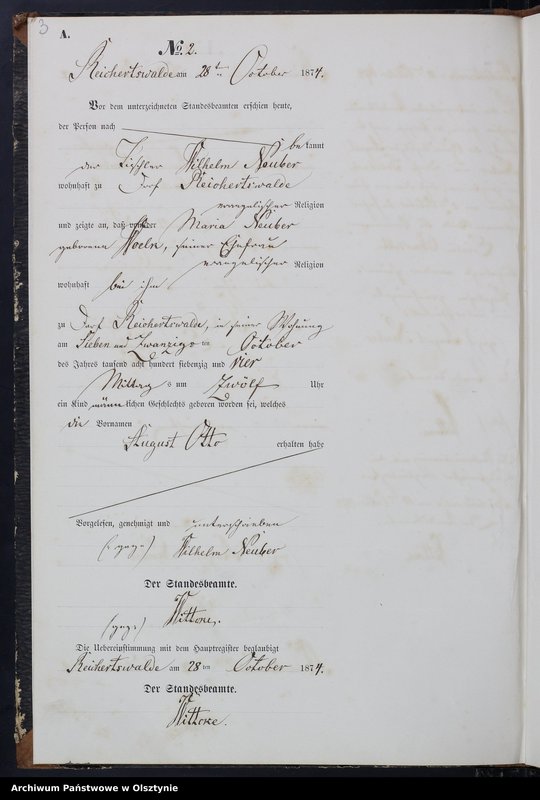 3
A.
No. 2.
Reichertswalde am 28ten October 1874.
Vor dem unterzeichneten Standesbeamten erschien heute,
der Person nach
bekannt
der Tischler Wilhelm Neuber
wohnhaft zu Dorf Reichertswalde
evangelischer Religion
und zeigte an, daß von der Maria Neuber
geborene, seiner Ehefrau
evangelischer Religion
wohnhaft bei ihm
zu Dorf Reichertswalde, in seiner Wohnung
am Sieben und Zwanzigsten October
des Jahres tausend acht hundert siebenzig und vier
Mittags um Zwölf Uhr
ein Kind männlichen Geschlechts geboren worden sei, welches
die Vornamen
August Otto erhalten habe
Vorgelesen, genehmigt und unterschrieben
(gez.) Wilhelm Neuber
Der Standesbeamte.
(gez.) Wittoke.
Die Uebereinstimmung mit dem Hauptregister beglaubigt
Reichertswalde am 28ten October 1874.
Der Standesbeamte.
Wittoke.
Archiwum Państwowe w Olsztynie